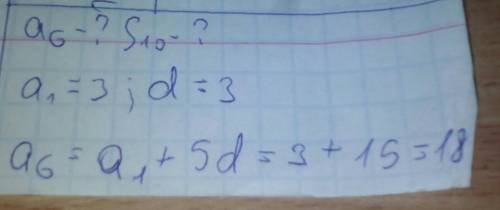 a₆-? S₁₀-?
a₁=3; d=3
a₆=a₁+5d=3+15=18